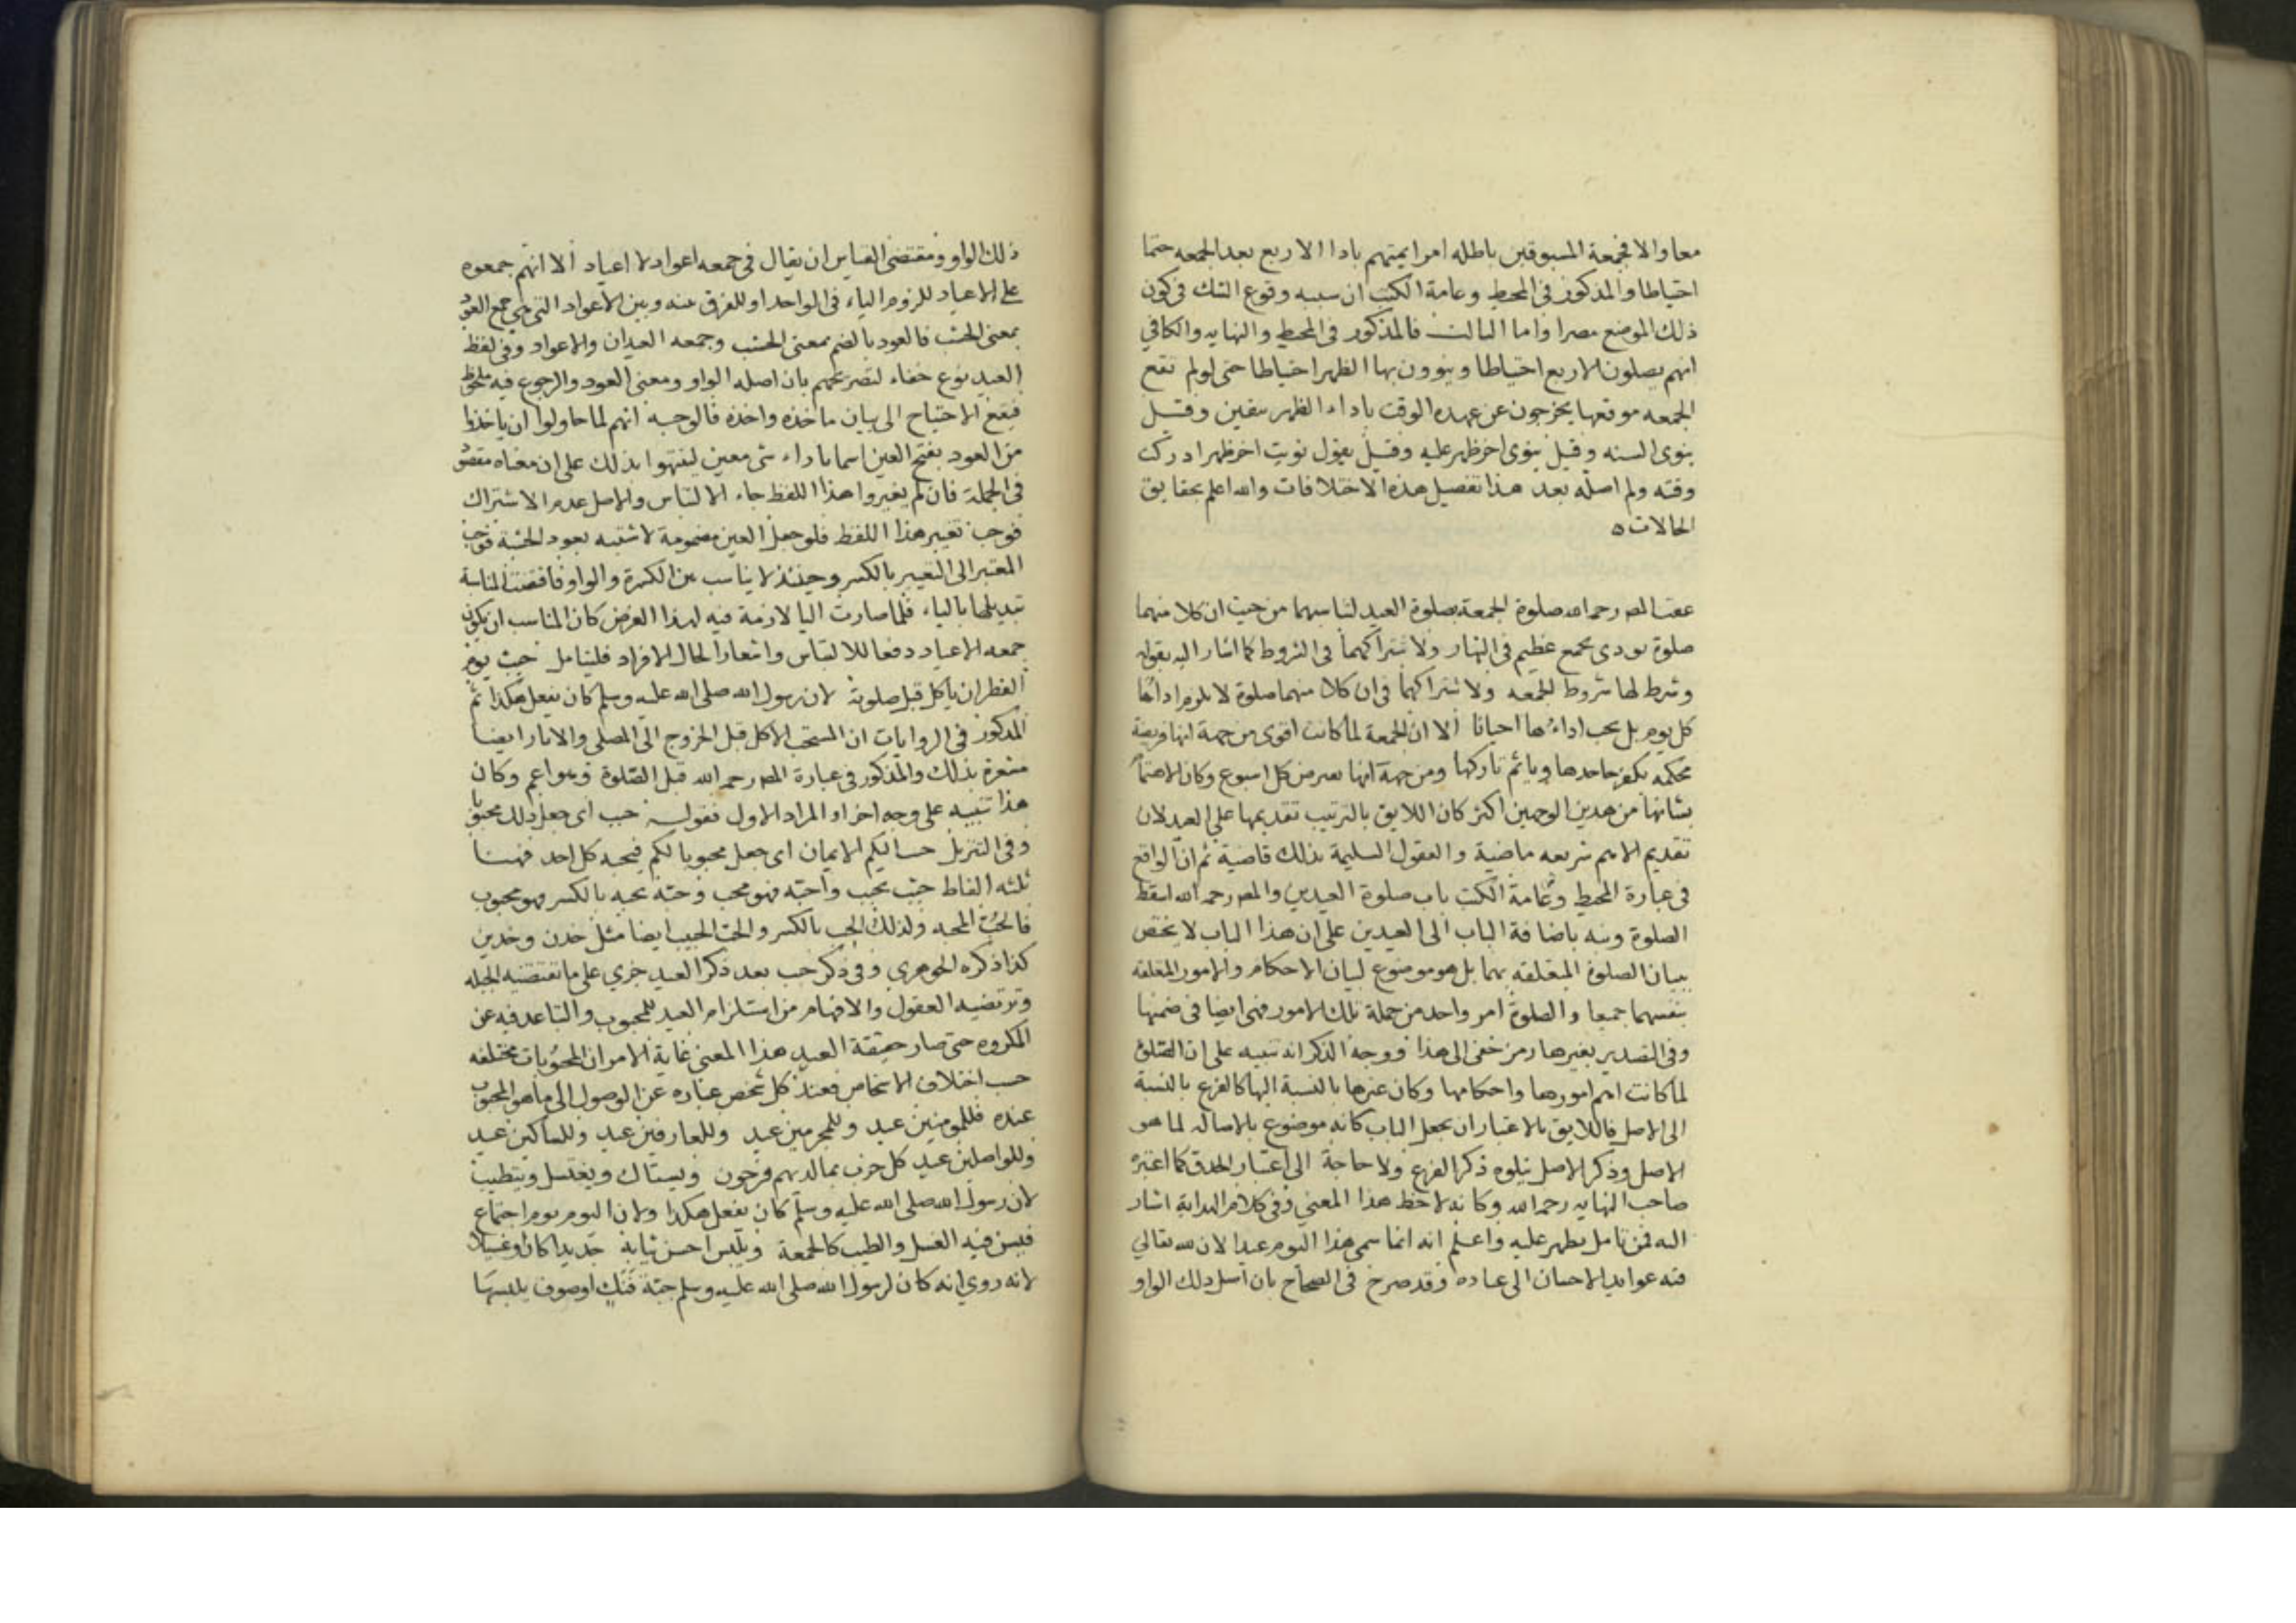 معا والا فجمعة المسبوقين باطله امر ايمتهم بادا الاربع بعد الجمعه حتما
احتياطا والمذكور فى المحيط وعامة الكتب ان سببه وقوع الشك فى كون
ذلك الموضع مصرا واما الثالث فالمذكور فى المحيط والنهايه والكافي
انهم يصلون الاربع احتياطا وينوون بها الظهر احتياطا حتى لو لم تقع
الجمعه موقعها يخرجون عن عهده الوقت باداء الظهر بيقين وقيل
ينوى السنه وقيل ينوى اخر ظهر عليه وقيل يقول نويت اخر ظهر ادركت
وقته ولم اصله بعد هذا تفصيل هذه الاختلافات والله اعلم بحقايق
الحالات ه
عقب المصـ رحمه الله صلوة الجمعة بصلوة العيد لتناسبهما من حيث ان كلا منهما
صلوة تودى بجمع عظيم فى النهار ولاشتراكهما فى الشروط كما اشار اليه بقوله
وشرط لها شروط الجمعه ولاشتراكهما فى ان كلا منهما صلوة لا يلزم اداها
كل يوم بل يجب اداءها احيانا الا ان الجمعة لما كانت اقوى من جهة انها فريضة
محكمه يكفر جاحدها وياثم تاركها ومن جهة انها تعرض كل اسبوع وكان الاهتمام
بشانها من هذين الوجهين اكثر كان اللايق بالترتيب تقديمها على العيد لان
تقديم الاهم شريعه ماضية والعقول السليمة بذلك قاضية ثم ان الواقع
فى عبارة المحيط وعامة الكتب باب صلوة العيدين والمصـ رحمه الله اسقط
الصلوة ونبه باضافة الباب الى العيدين على ان هذا الباب لا يختص
ببيان الصلوة المتعلقه بهما بل هو موضوع لبيان الاحكام والامور المتعلقه
بنفسهما جميعا والصلوة امر واحد من جملة تلك الامور فهى ايضا فى ضمنها
وفى التصدير بغيرها رمز خفى الى هذا ووجه الذكر انه تنبيه على ان الصلوة
لما كانت اهم امورها واحكامها وكان غيرها بالنسبة اليها كالفرع بالنسبة
الى الاصل فاللايق بالاعتبار ان يجعل الباب كانه موضوع بالاصاله لما هو
الاصل وذكر الاصل يتلوه ذكر الفرع ولا حاجة الى اعتبار الحذف كما اعتبره
صاحب النهايه رحمه الله وكانه لاحظ هذا المعنى وفى كلام الهداية اشار
اليه فمن تامل يظهر عليه واعلم انه انما سمى هذا اليوم عيدا لان لله تعالي
فيه عوايد الاحسان الى عباده وقد صرح فى الصحاح بان اصل ذلك الواو
ذلك الواو ومقتضى القياس ان يقال فى جمعه اعواد لا اعياد الا انهم جمعوه
على الاعياد للزوم الياء فى الواحد او للفرق بينه وبين الاعواد التى هى جمع العود
بمعنى الخشب فالعود بالضم بمعنى الخشب وجمعه العيدان والاعواد وفى لفظ
العيد نوع خفاء لتصريحهم بان اصله الواو ومعنى العود والرجوع فيه ملحوظ
فيقع الاحتياج الى بيان ماخذه واخذه فالوجه انهم لما حاولوا ان ياخذوا
من العود بفتح العين اسما باداء شى معين لينتهوا بذلك على ان معناه مقصود
فى الجملة فان لم يغيروا هذا اللفظ جاء الالتباس والاصل عدم الاشتراك
فوجب تغيير هذا اللفظ فلو جعل العين مضمومة لاشتبه بعود الخشبة فوجب
المعتبر الى التغيير بالكسر وحينئذ لا يناسب بين الكسرة والواو فاقتضت المناسبة
تبديلها بالياء فلما صارت اليا لازمة فيه لهذا الغرض كان المناسب ان يكون
جمعه الاعياد دفعا للالتباس واشعارا لحال الافراد فليتامل حبب يوم
الفطر ان ياكل قبل صلوته لان رسول الله صلى الله عليه وسلم كان يفعل هكذا ثم
المذكور فى الروايات ان المستحب الاكل قبل الخروج الى المصلى والاثار ايضا
مشعرة بذلك والمذكور فى عبارة المصـ رحمه الله قبل الصلوة وهو اعم وكان
هذا تنبيه على وجه اخر او المراد الاول فقوله حبب اى جعل ذلك محبوبا
وفى التنزيل حبب اليكم الايمان اى جعل محبوبا لكم فيحبه كل احد فهنا
ثلثه الفاظ حبب يحبب واحبه فهو محب وحبه يحبه بالكسر فهو محبوب
فالحب المحبه وكذلك الحب بالكسر والحب الحبيب ايضا مثل خدن وخدين
كذا ذكره الجوهري وفى ذكر حبب بعد ذكر العيد جري على ما تقتضيه الجبله
وترتضيه العقول والافهام من استلزام العيد للمحبوب والتباعد فيه عن
المكروه حتى صار حقيقة العيد هذا المعنى غاية الامر ان المحبوبات مختلفه
حسب اختلاف الاشخاص فعند كل شخص عباره عن الوصول الى ما هو المحبوب
عنده فللمومنين عيد وللمجرمين عيد وللعارفين عيد وللساكين عيد
وللواصلين عيد كل حزب بما لديهم فرحون ويستاك ويغتسل ويتطيب
لان رسول الله صلى الله عليه وسلم كان يفعل هكذا ولان اليوم يوم اجتماع
فيسن فيه الغسل والطيب كالجمعة ويلبس احسن ثيابه جديدا كان او غسيلا
لانه روي انه كان لرسول الله صلى الله عليه وسلم جبة فنك او صوف يلبسها